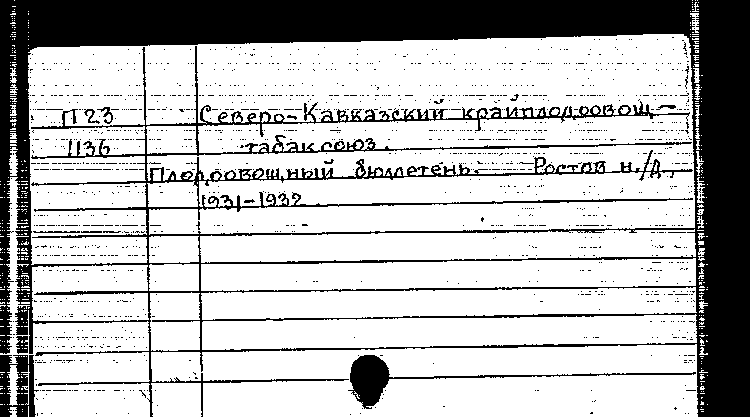 П23 Северо-Кавказский крайплодоовощ-
1136 табаксоюз.
Плодоовощный бюллетень. Ростов н./Д.,
1931-1932